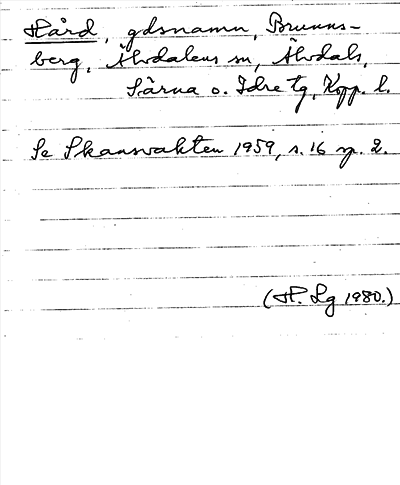 Hård, gdsnamn, Brunns-
berg, Älvdalens sn, Älvdals,
Särna o. Idre tg, Kopp. l.
Se Skansvakten 1959, s. 16 sp. 2.
(H. Lg 1980.)